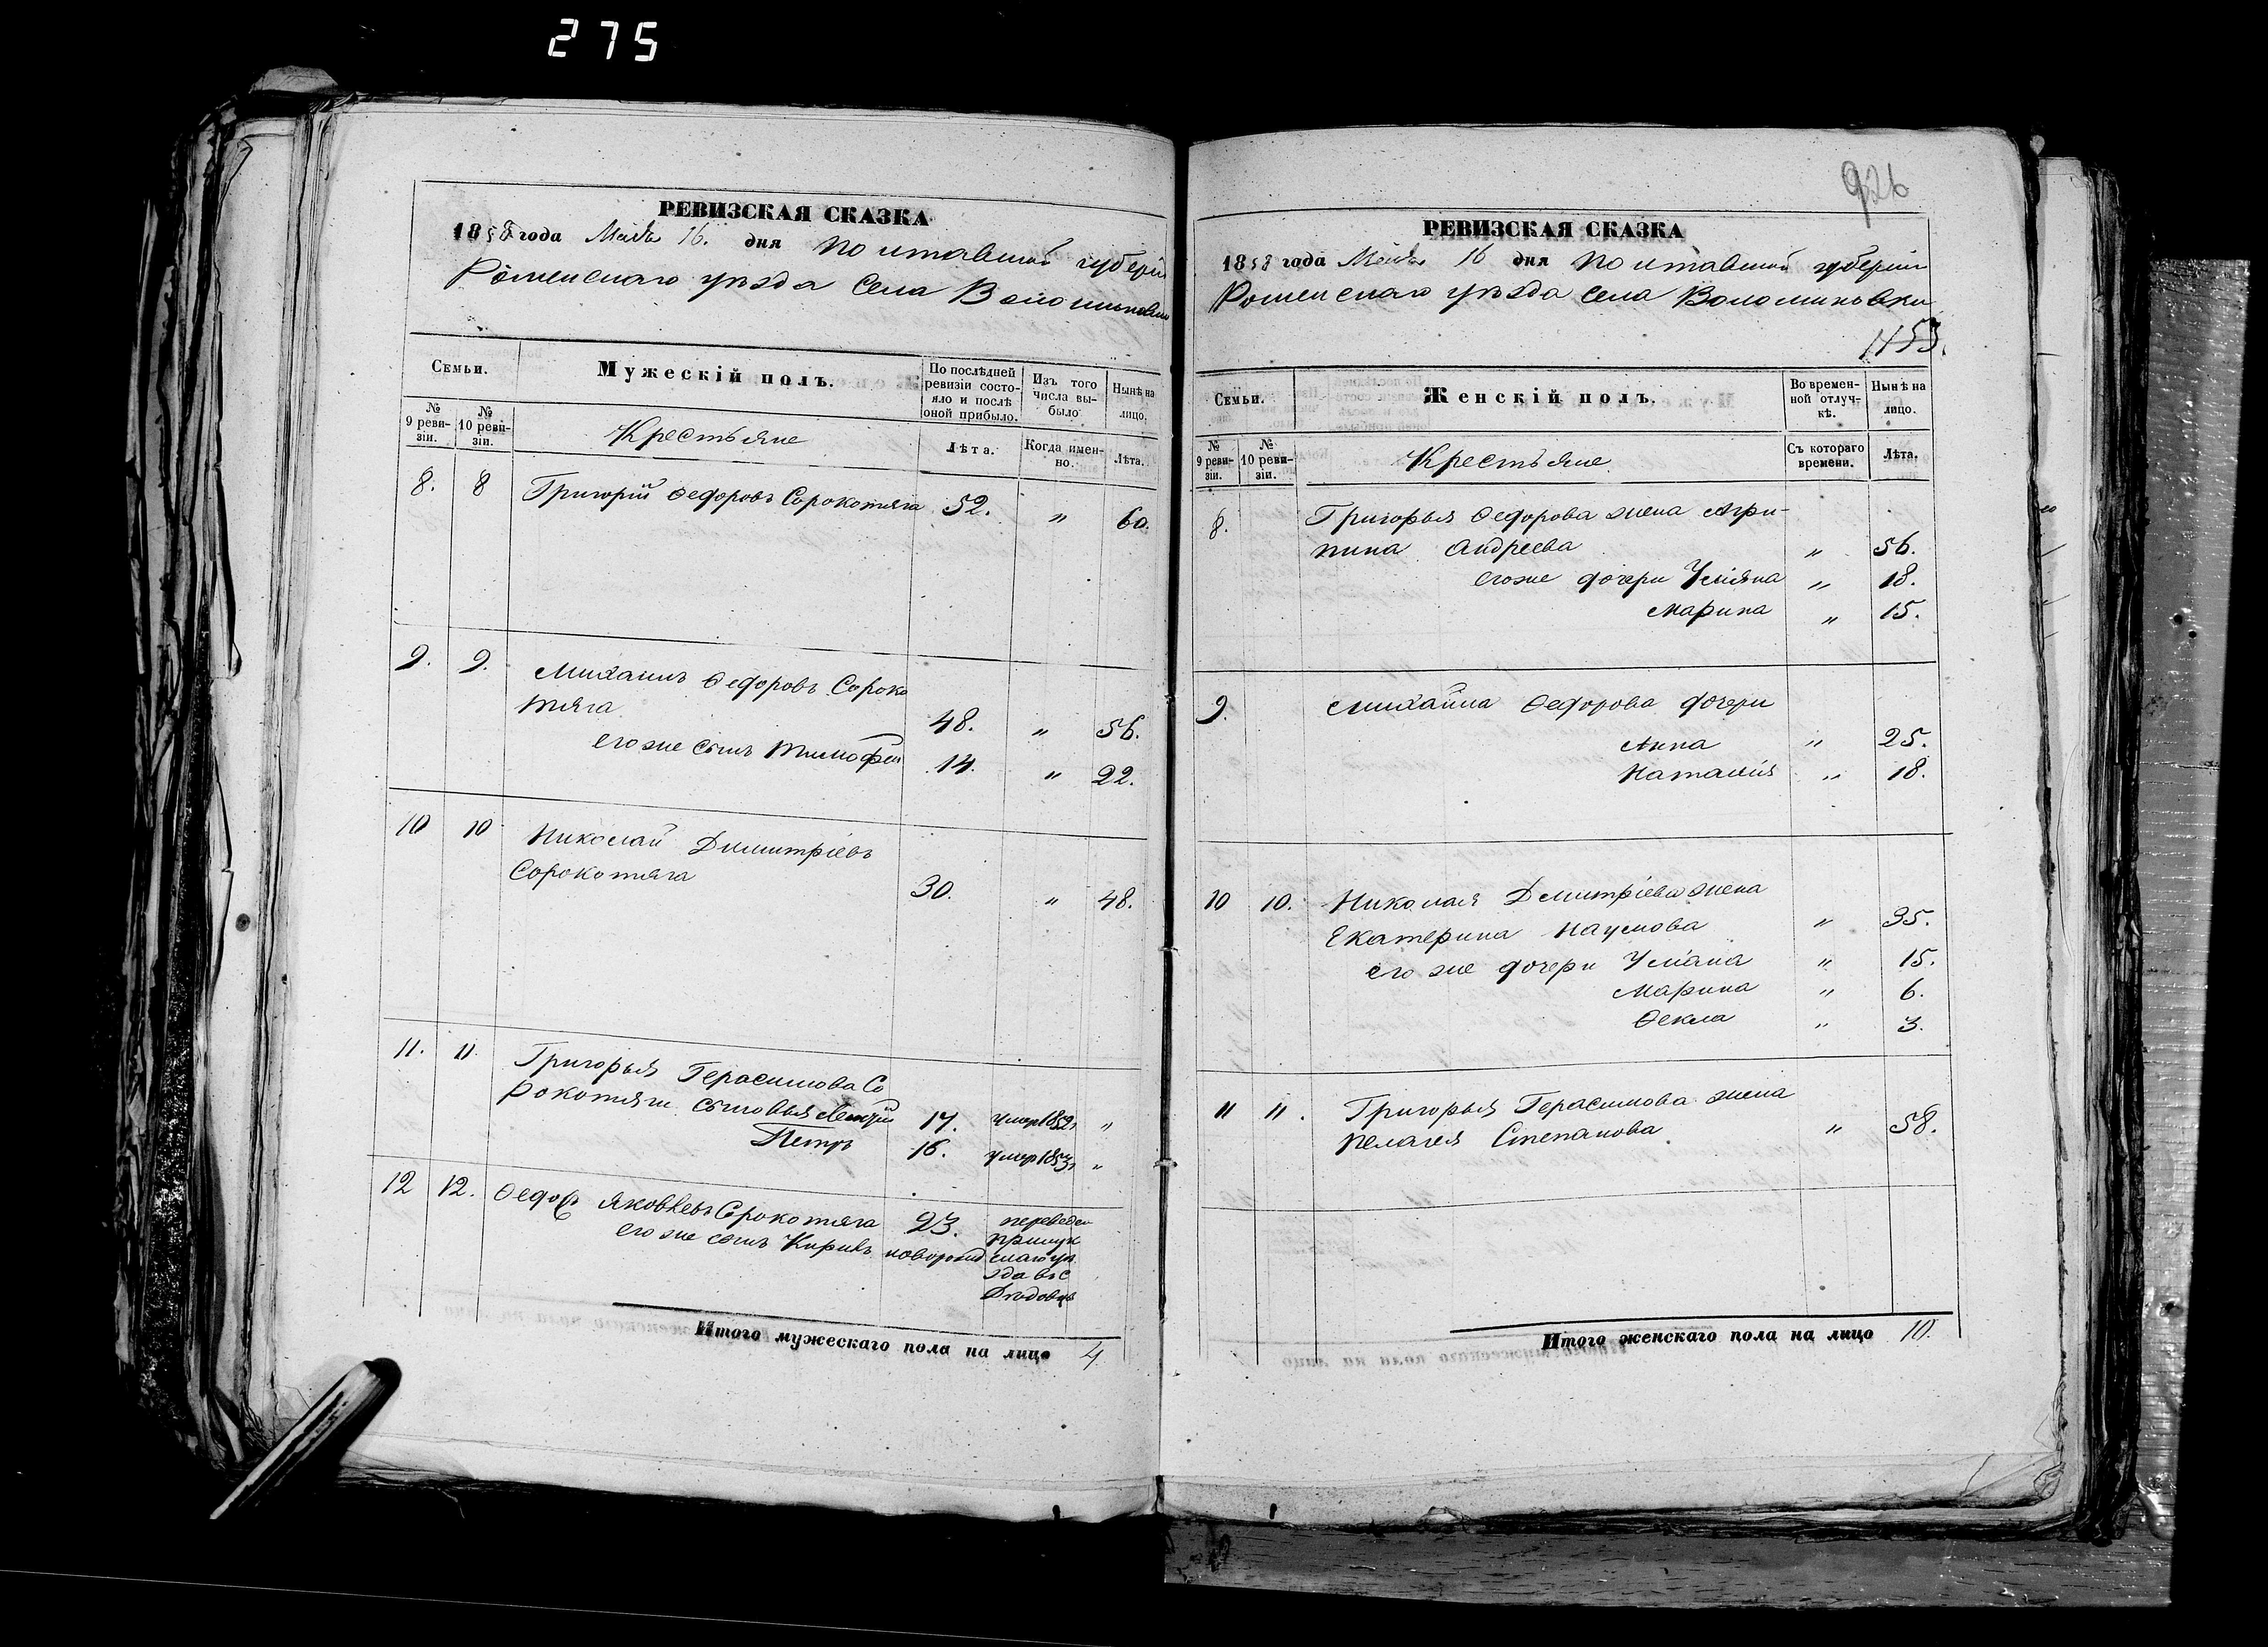 275
РЕВИЗСКАЯ СКАЗКА
1858 года Маія 16. дня Полтавской губерніи
Роменскаго уѣзда Села Волошиновки
Семьи.
Мужескій полъ.
По послѣдней ревизіи состояло и послѣ оной прибыло.
Изъ того числа выбыло
Нынѣ на лицо.
№ 9 ревизіи.
№ 10 ревизіи.
Крестьяне
Лѣта.
Когда именно.
Лѣта.
8. 8 Григорій Ѳедоровъ Сорокотяга 52. " 60.
9. 9. Михаилъ Ѳедоровъ Сороко
тяга 48. " 56.
его же сынъ Тимофей 14. " 22.
10 10 Николай Димитріевъ
Сорокотяга 30. " 48.
11. 11. Григорья Герасимова Со
рокотяги сыновья 17. умеръ 1852 "
Петръ 16. умеръ 1853 "
12 12. Ѳедоръ Яковлевъ Сорокотяга 23. переведен
его же сынъ Кирилъ новорожд Прилук
скаго уѣ
зда въ с
Дѣдовцы
Итого мужескаго пола на лицо 4
926
РЕВИЗСКАЯ СКАЗКА
1858 года Маія 16 дня Полтавской губерніи
Роменскаго уѣзда села Волошиновки
1453.
Семьи.
Женскій полъ.
Во временной отлучкѣ.
Нынѣ на лицо.
№ 9 ревизіи.
№ 10 ревизіи.
Крестьяне
Съ котораго времени.
Лѣта.
8. Григорья Ѳедорова жена Агри-
пина Андреева " 56.
его же дочери Уліяна " 18.
Марина " 15.
9. Михайла Ѳедорова дочери
Анна " 25.
Наталія " 18.
10 10. Николая Дмитріева жена
Екатерина Наумова " 35.
его же дочери Уліана " 15.
Марина " 6.
Ѳекла " 3.
11 11. Григорья Герасимова жена
Пелагея Степанова " 58.
Итого женскаго пола на лицо 10.